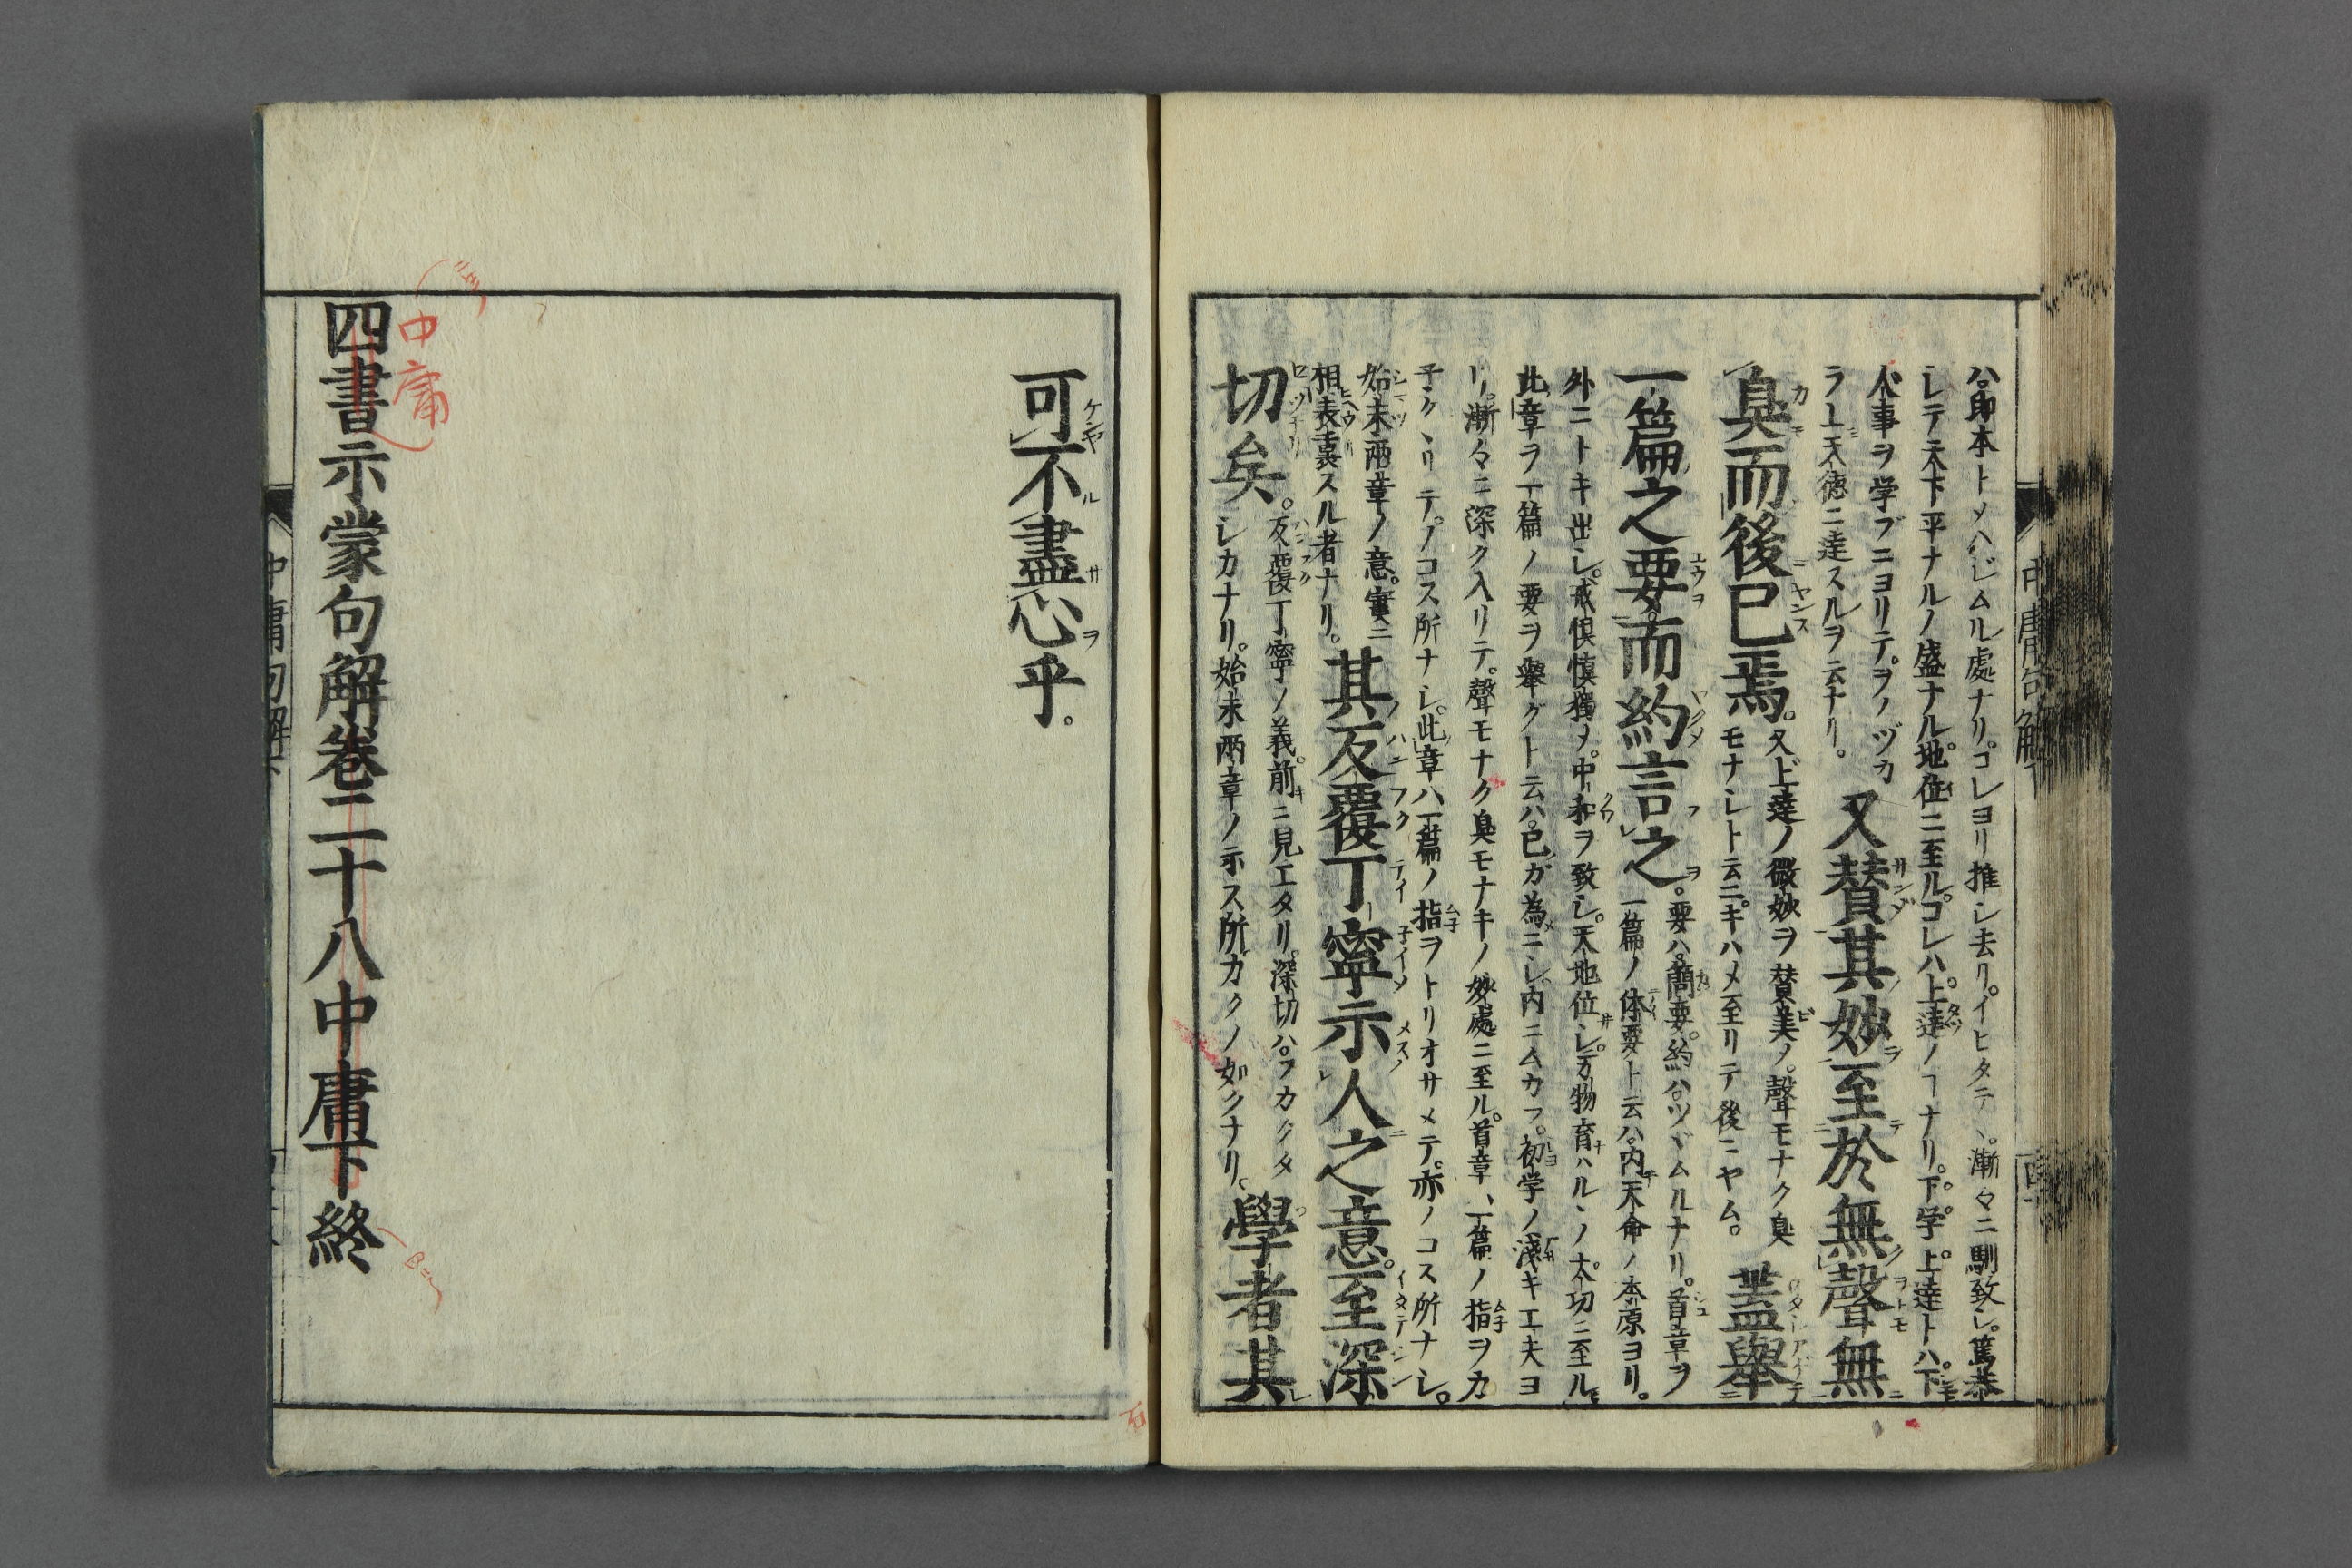 ハ。即本トメハジムル處ナリ。コレヨリ推シ去リ。イヒタテヽ。漸々ニ馴致シ。篤恭
シテ天下平ナルノ盛ナル。地位ニ至ル。コレハ。上達ノヿナリ。下学上達トハ。下
人事ヲ学ブニヨリテ。ヲノヅカ
ラ上天徳ニ達スルヲ云ナリ。
又賛其妙至於無聲無
臭而後已焉。
又上達ノ微妙ヲ賛美メ。聲モナク臭
モナシト云ニ。キハメ至リテ後ニヤム。
蓋舉
一篇之要。而約言之。
要ハ。簡要。約ハ。ツヾムルナリ。首章ヲ
一篇ノ体要ト云ハ。内天命ノ本原ヨリ。
外ニトキ出シ。戒慎慎獨メ。中和ヲ致シ。天地位シ。万物育ハルヽノ大功ニ至ル。
此章ヲ一篇ノ要ヲ舉グト云ハ。已ガ為ニシ。内ニムカフ。初学ノ淺キ工夫ヨ
リ。漸々ニ深ク入リテ。聲モナク臭モナキノ妙處ニ至ル。首章ハ一篇ノ指ヲカ
子クヽリテ。ノコス所ナシ。此章ハ一篇ノ指ヲトリオサメテ。亦ノコス所ナシ。
始末兩章ノ意。實ニ
相表裏スル者ナリ。
其反覆丁寧示人之意。至深
切矣。
反覆丁寧ノ義。前ニ見エタリ。深切ハ。フカクタ
シカナリ。始末兩章ノ示ス所。ガクノ如クナリ。
學者其
可不盡心乎。
四書示蒙句解卷二十八中庸下終
中庸
中庸句解下
中庸句解